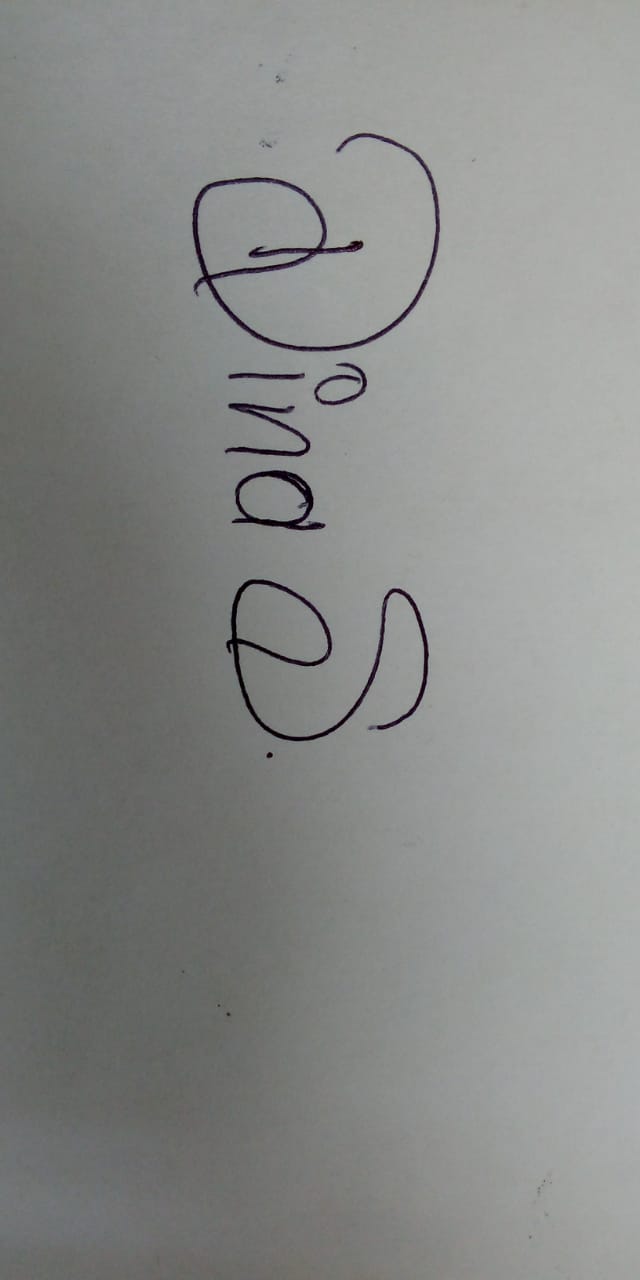 Dina S.